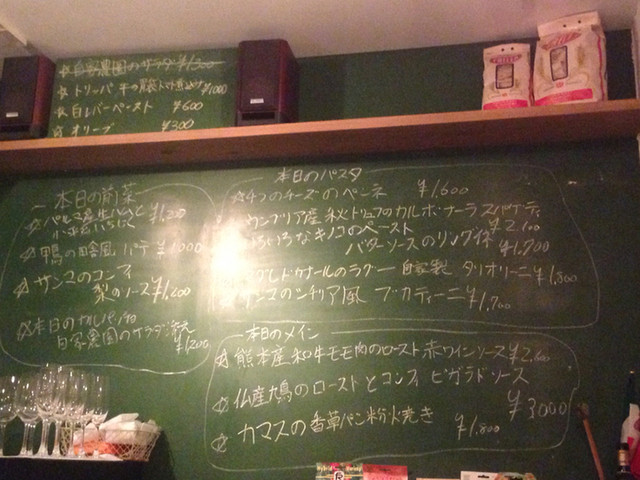 ☆自家農園のサラダ ¥1300
☆トリッパ 牛の胃袋トマト煮込み ¥1000
☆白レバーペースト ¥600
☆オリーブ ¥300
本日の前菜
☆パルマ産生ハムと ¥1,200
☆鴨の田舎風パテ ¥1000
☆サンマのコンフィ
梨のソース ¥1,200
☆本日のカルパッチョ
自家農園のサラダ添え
¥1,200
本日のパスタ
☆4つのチーズのペンネ ¥1,600
ウンブリア産 秋トリュフのカルボナーラ スパゲティ
¥2,100
いろいろなキノコのペースト
バターソースのリングイネ ¥1,700
のラグー 自家製 タリオリーニ ¥1,800
サンマのシチリア風 ブカティーニ ¥1,700
本日のメイン
☆熊本産和牛モモ肉のロースト 赤ワインソース ¥2,600
☆仏産鳩のローストとコンフィ ビガラドソース
¥3000
☆カマスの香草パン粉焼き ¥1,800